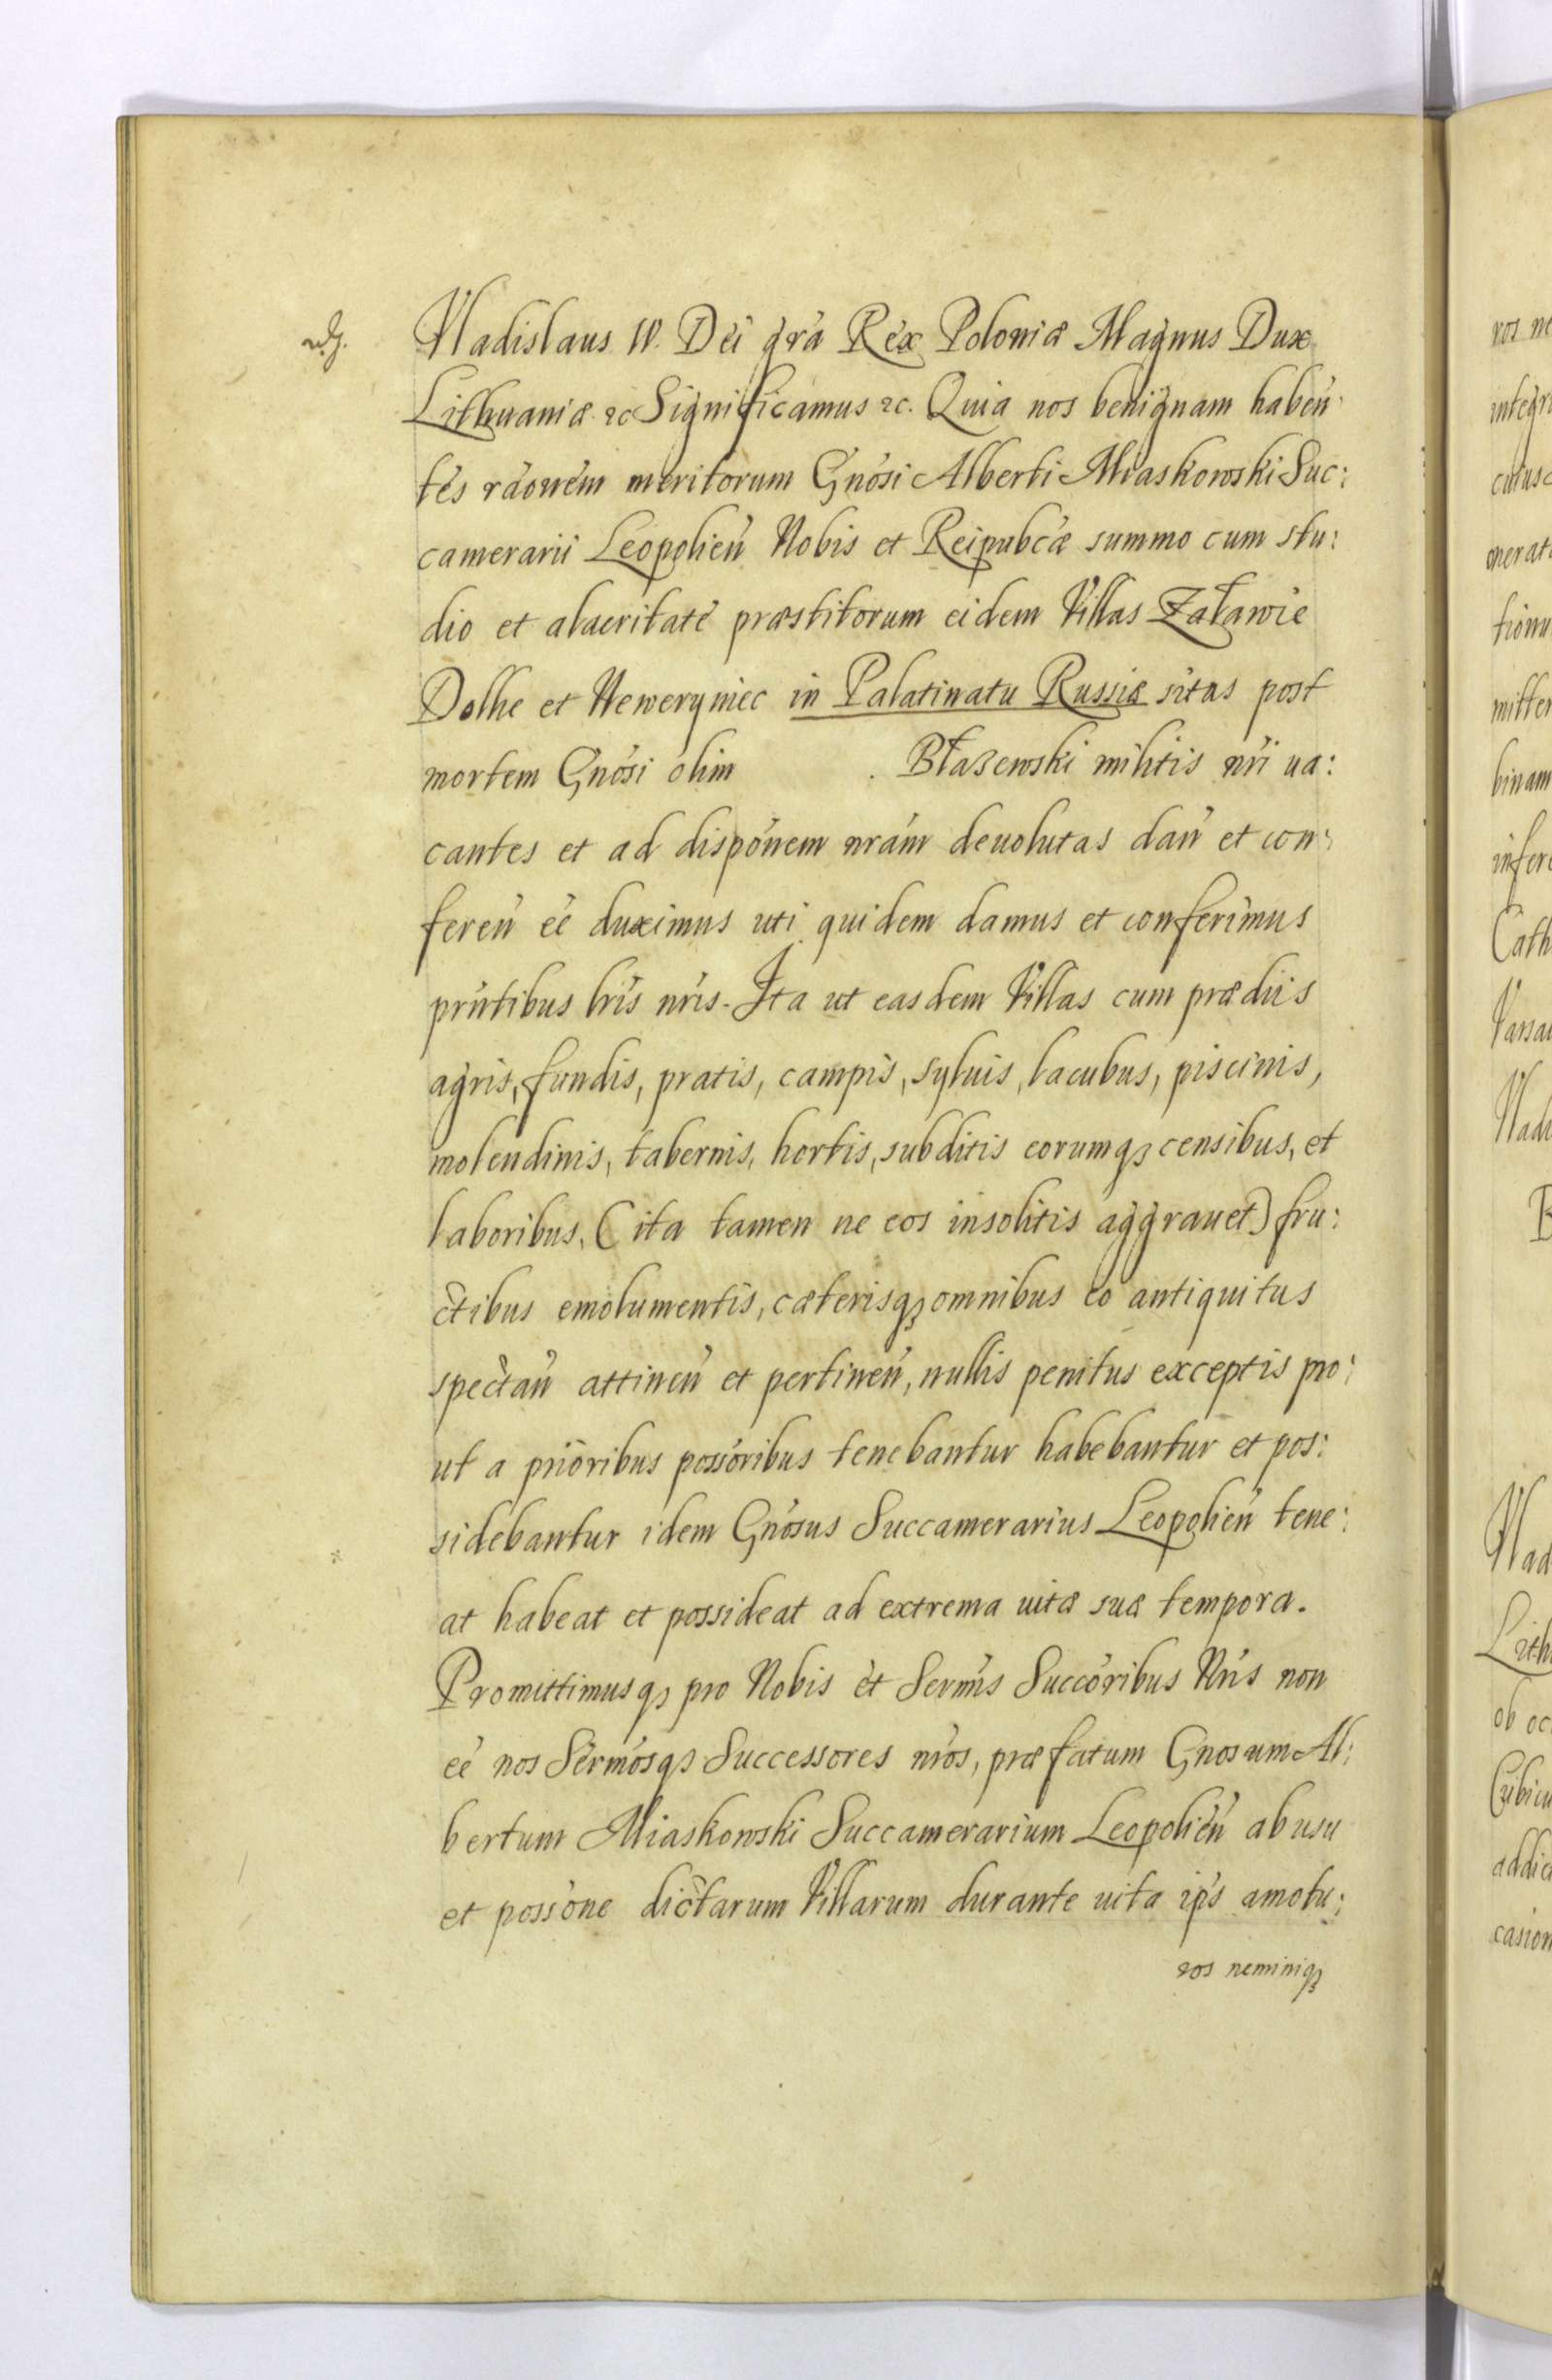 Vladislaus IV. Dei gra̅ Rex Poloniæ Magnus Dux
Lithuaniæ ꝛc Significamus ꝛc. Quia nos benignam haben:
tes rãonem meritorum Gnősi Alberti Miaskowski Suc:
camerarii Leopolien̅ Nobis et Reipubcæ summo cum stu:
dio et alacritate præstitorum eidem Villas Załawie
Dolhe et Neweryniec in Palatinatu Russiæ sitas post
mortem Gnősi olim . Błazewski militis nr̅i ua:
cantes et ad dispőnem nra̅m deuolutas dan̅ et con:
feren̅ ee̅ duximus uti quidem damus et conferimus
prn̅tibus lr̅is nr̅is. Ita ut easdem Villas cum prædiis
agris, fundis, pratis, campis, syluis, lacubus, piscinis,
molendinis, tabernis, hortis, subditis eorumqꝫ censibus, et
laboribus, (ita tamen ne eos insolitis aggrauet) fru:
ctibus emolumentis, cæterisqꝫ omnibus eo antiquitus
spectan̅ attinen̅ et pertinen̅, nullis penitus exceptis pro:
ut a prioribus possőribus tenebantur habebantur et pos:
sidebantur idem Gnősus Succamerarius Leopolien̅ tene:
at habeat et possideat ad extrema uitæ suæ tempora.
Promittimusqꝫ pro Nobis et Serm̅is Succőribus Nr̅is non
ee̅ nos Serm̅osqꝫ Successores nr̅os, præfatum Gnosum Al:
bertum Miaskowski Succamerarium Leopolien̅ ab usu
et possőne dictarum Villarum durante uita ips̅ amotu:
ros neminiqꝫ